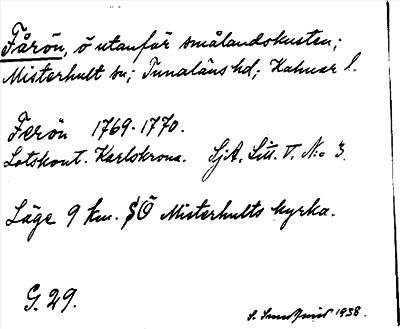 Fårön, ö utanför smålandskusten;
Misterhult sn; Tunaläns hd; Kalmar l.
Ferön 1769-1770.
Lotskont. Karlskrona. SjA. Litt. V. No 3.
Läge 9 km. SÖ Misterhults kyrka.
G. 29.
S. Sundquist 1938.